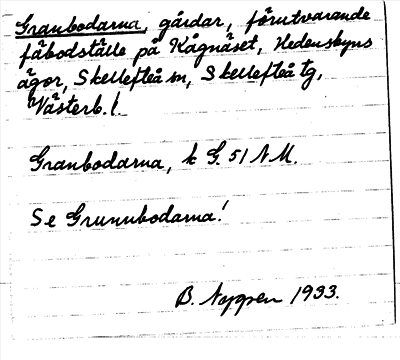 Granbodarna, gårdar, förutvarande
fäbodställe på Kågnäset, Hedensbyns
ägor, Skellefteå sn, Skellefteå tg,
Västerb. l.
Granbodarna, k G. 51 N M.
Se Grunnbodarna!
B. Nygren 1933.